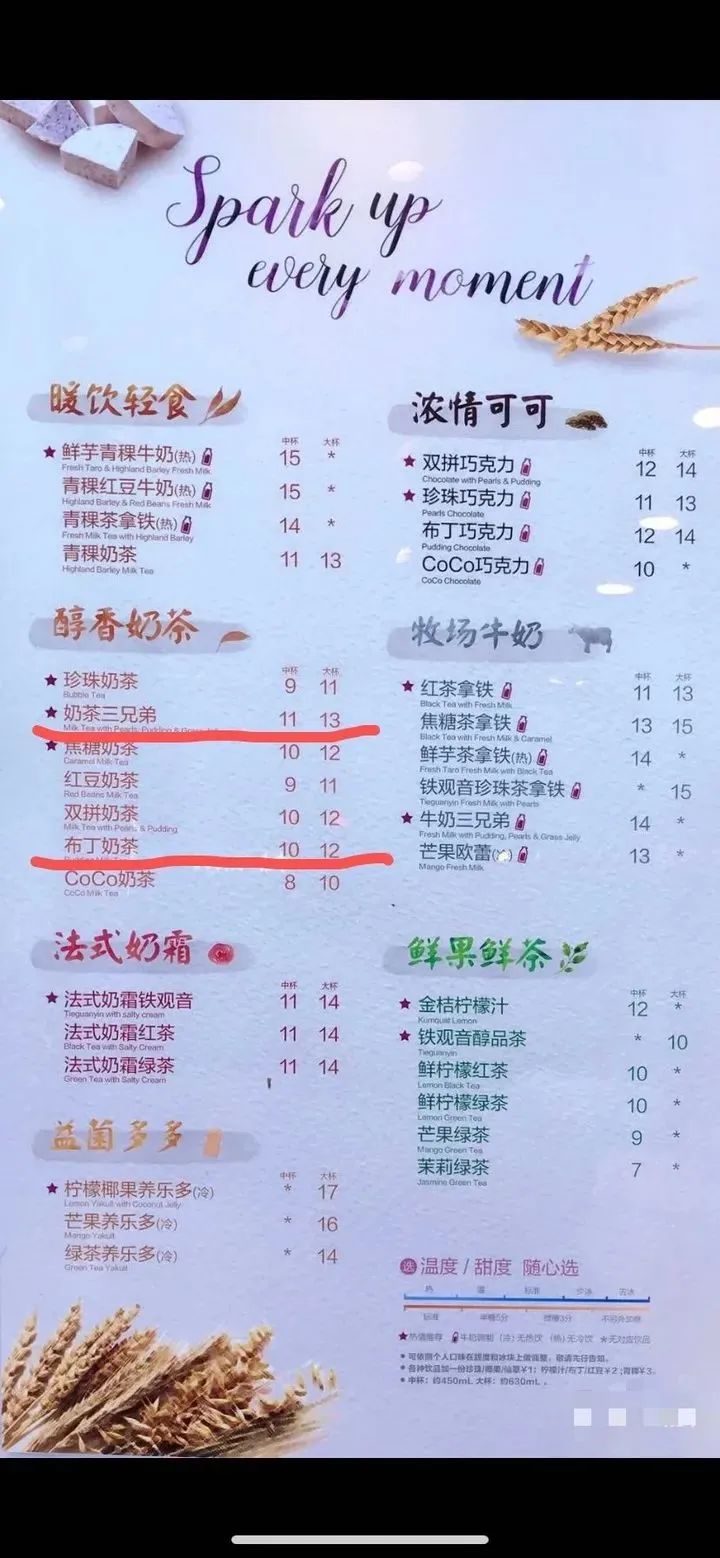 Spark up
every moment
暖饮轻食
中杯 大杯
★ 鲜芋青稞牛奶(热) 15 *
Fresh Taro & Highland Barley Fresh Milk
青稞红豆牛奶(热) 15 *
Highland Barley & Red Beans Fresh Milk
青稞茶拿铁(热) 14 *
Fresh Milk Tea with Highland Barley
青稞奶茶 11 13
Highland Barley Milk Tea
醇香奶茶
中杯 大杯
★ 珍珠奶茶 9 11
Bubble Tea
★ 奶茶三兄弟 11 13
Milk Tea with Pearls, Pudding & Grass
★ 焦糖奶茶 10 12
Caramel Milk Tea
红豆奶茶 9 11
Red Beans Milk Tea
双拼奶茶 10 12
Milk Tea with Pearls & Pudding
布丁奶茶 10 12
CoCo奶茶 8 10
CoCo Milk Tea
法式奶霜
中杯 大杯
★ 法式奶霜铁观音 11 14
Tieguanyin with salty cream
法式奶霜红茶 11 14
Black Tea with Salty Cream
法式奶霜绿茶 11 14
Green Tea with Salty Cream
益菌多多
中杯 大杯
★ 柠檬椰果养乐多(冷) * 17
Lemon Yakult with Coconut Jelly
芒果养乐多(冷) * 16
Mango Yakult
绿茶养乐多(冷) * 14
Green Tea Yakult
浓情可可
中杯 大杯
★ 双拼巧克力 12 14
Chocolate with Pearls & Pudding
★ 珍珠巧克力 11 13
Pearls Chocolate
布丁巧克力 12 14
Pudding Chocolate
CoCo巧克力 10 *
CoCo Chocolate
牧场牛奶
中杯 大杯
★ 红茶拿铁 11 13
Black Tea with Fresh Milk
焦糖茶拿铁 13 15
Black Tea with Fresh Milk & Caramel
鲜芋茶拿铁(热) 14 *
Fresh Taro Fresh Milk with Black Tea
铁观音珍珠茶拿铁 * 15
Tieguanyin Fresh Milk with Pearls
★ 牛奶三兄弟 14 *
Fresh Milk with Pudding, Pearls & Grass Jelly
芒果欧蕾 13 *
Mango Fresh Milk
鲜果鲜茶
中杯 大杯
★ 金桔柠檬汁 12 *
Kumquat Lemon
★ 铁观音醇品茶 * 10
Tieguanyin
鲜柠檬红茶 10 *
Lemon Black Tea
鲜柠檬绿茶 10 *
Lemon Green Tea
芒果绿茶 9 *
Mango Green Tea
茉莉绿茶 7 *
Jasmine Green Tea
选 温度 / 甜度 随心选
热 温 标准 少冰 去冰
标准 半糖5分 微糖3分 不另外加糖
★热情推荐 牛奶调制 (冷)无热饮 (热)无冷饮 *无对应饮品
• 可依照个人口味在甜度和冰块上做调整，敬请先行告知。
• 各种饮品加一份珍珠/椰果/仙草¥1；柠檬汁/布丁/红豆¥2；青稞¥3。
• 中杯：约450mL 大杯：约630mL 。